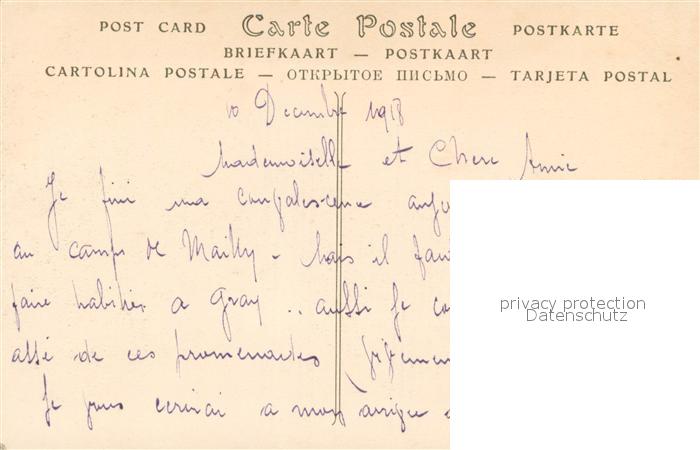 POST CARD Carte Postale POSTKARTE
BRIEFKAART — POSTKAART
CARTOLINA POSTALE — ОТКРЫТОЕ ПИСЬМО — TARJETA POSTAL
10 Decembre 1918
Mademoiselle et Chere Amie
Je fini ma convalescence
au camps de Mailly - Mais il
faire habiller a Gray .. aussi je
assé de ces promenades
Je vous ecrirai a mon
privacy protection
Datenschutz